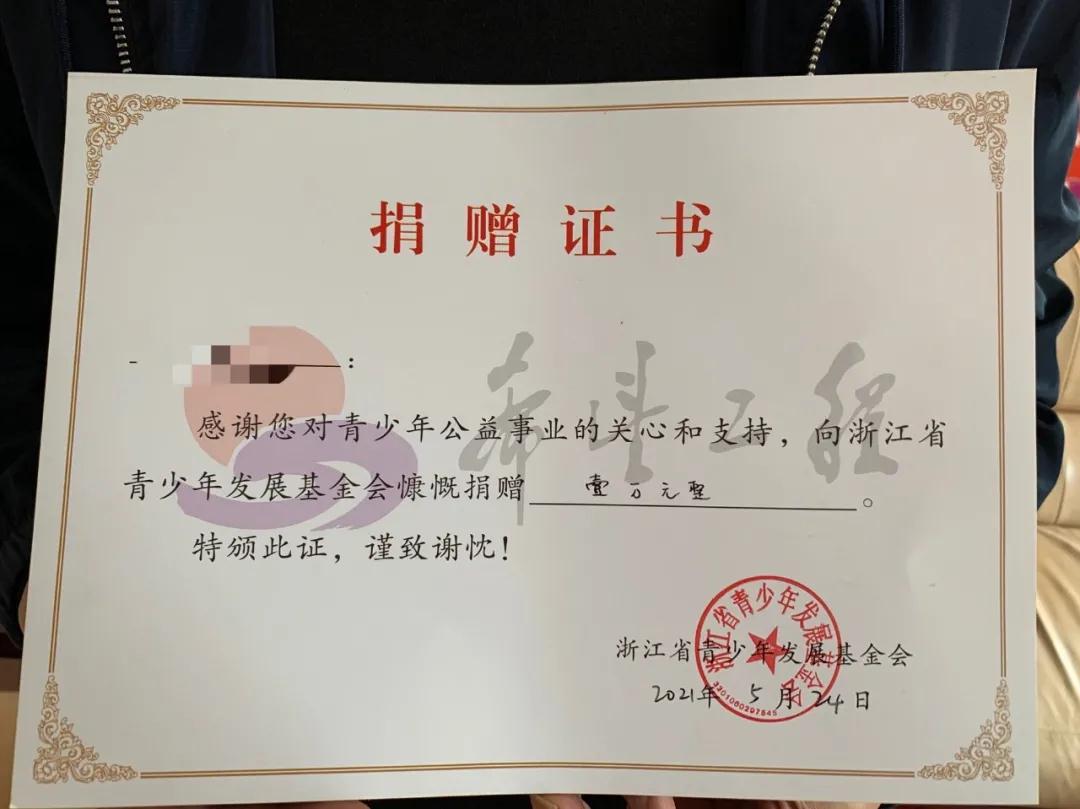 捐赠证书
：
希望工程
感谢您对青少年公益事业的关心和支持，向浙江省
青少年发展基金会慷慨捐赠壹万元整。
特颁此证，谨致谢忱！
浙江省青少年发展基金会
2021年5月24日
浙江省青少年发展基金会
3301060297845